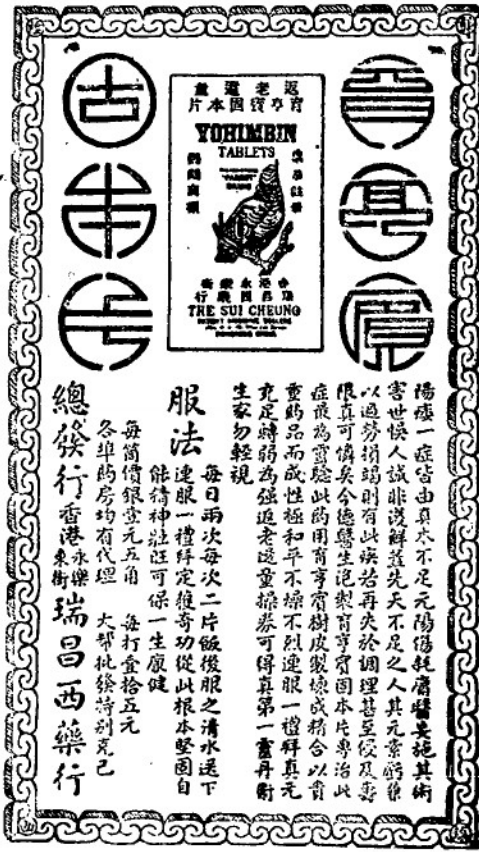 育亨賓
固本片
返老還童
育亨賓固本片
YOHIMBIN
TABLETS
鸚鵡商標
香港永樂街
瑞昌西藥行
THE SUI CHEUNG
陽痿一症皆由真本不足元陽傷耗庸醫妄施其術
害世悞人誠非淺鮮蓋先天不足之人其元素虧
以過勞損竭則有此疾若再失於調理甚至侵及壽
限真可憐矣今德醫生泡製育亨賓固本片專治此
症最為靈驗此药用育亨賓樹皮製煉成精合以貴
重药品而成性極和平不燥不烈連服一禮拜真元
充足轉弱為强返老還童操券可得真第一靈丹衛
生家勿輕視
服法
每日兩次每次二片飯後服之清水送下
連服一禮拜定獲奇功從此根本堅固自
能精神壯旺可保一生康健
每筒價銀壹元五角 每打壹拾五元
各埠药房均有代理 大帮批發特別克己
總發行香港永樂東街瑞昌西藥行